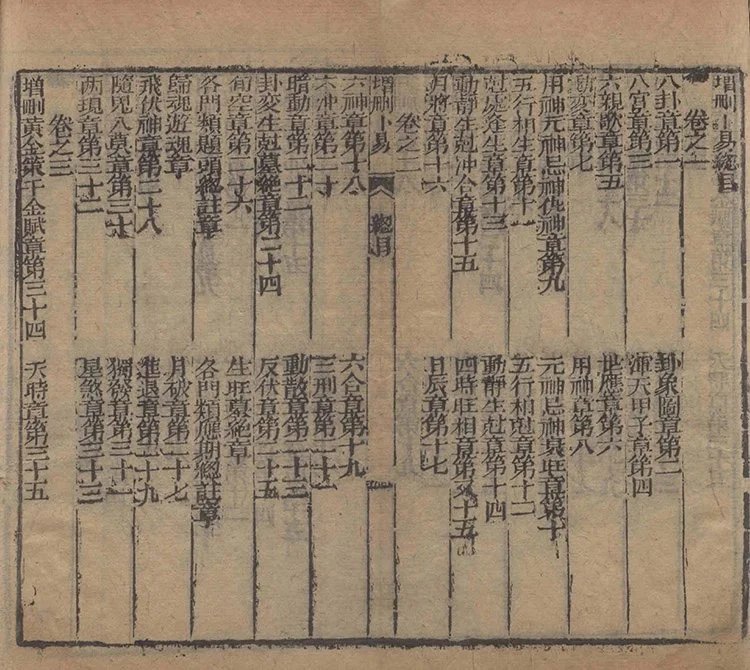 增刪卜易總目
卷之一
八卦章第一　卦象圖章第二
八宮章第三　渾天甲子章第四
六親歌章第五　世應章第六
動變章第七　用神章第八
用神元神忌神仇神章第九　元神忌神衰旺章第十
五行相生章第十一　五行相尅章第十二
尅處逢生章第十三　動靜生尅章第十四
動靜生尅冲合章第十五　四時旺相章第又十五
月將章第十六　日辰章第十七
卷之二
增刪卜易　總目
六神章第十八　六合章第十九
六冲章第二十　三刑章第二十一
暗動章第二十二　動散章第二十三
卦變生尅墓絶章第二十四　反伏章第二十五
旬空章第二十六　生旺墓絶章
各門類題頭總註章　各門類應期總註章
歸魂遊魂章　月破章第二十七
飛伏神章第二十八　進退章第二十九
隨鬼入墓章第三十　獨發章第三十一
両現章第三十二　星煞章第三十三
卷之三
增刪黃金策千金賦章第三十四　天時章第三十五